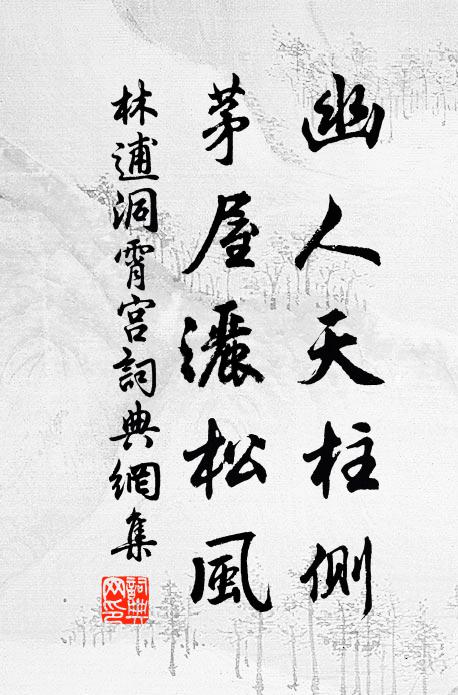 幽人天柱側
茅屋灑松風
林逋洞霄宮詞典網集
詞典网印